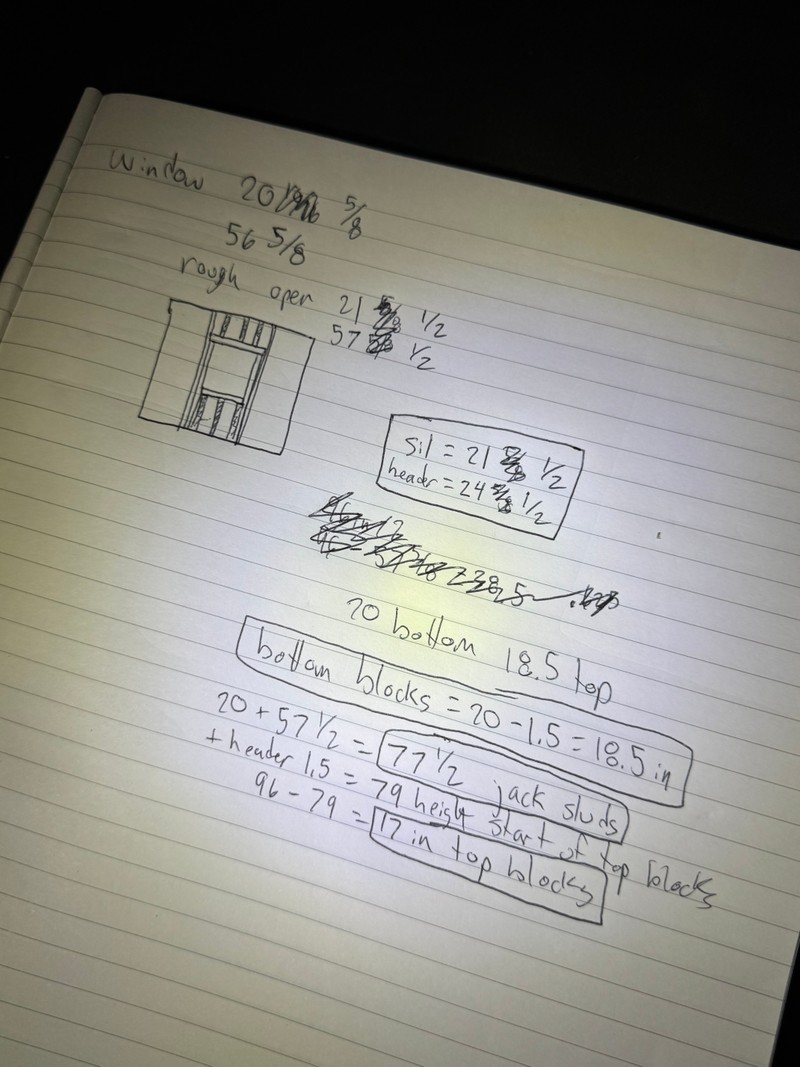 window 20 5/8
56 5/8
rough open 21 1/2
57 1/2
sil = 21 1/2
header = 24 1/2
20 bottom 18.5 top
bottom blocks = 20 - 1.5 = 18.5 in
20 + 57 1/2 = 77 1/2 jack studs
+ header 1.5 = 79 height start of top blocks
96 - 79 = 17 in top blocks